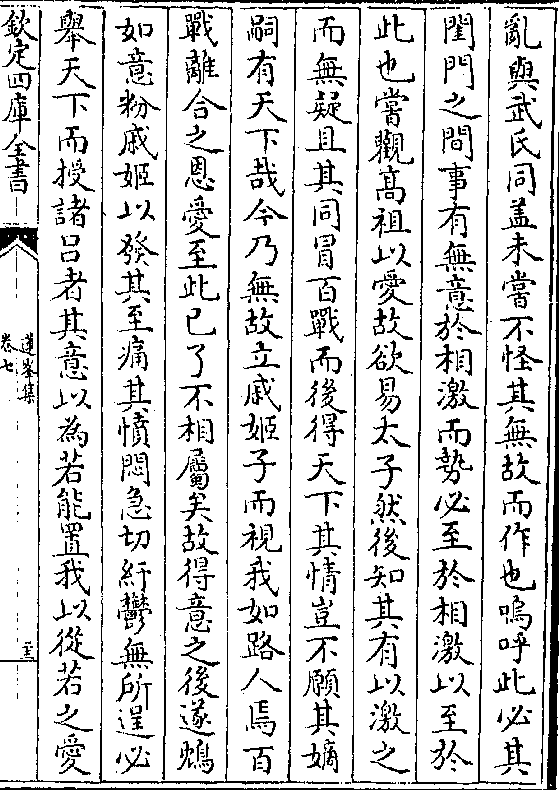 亂與武氏同蓋未嘗不怪其無故而作也嗚呼此必其
閨門之間事有無意於相激而勢必至於相激以至於
此也嘗觀髙祖以愛故欲易太子然後知其有以激之
而無疑且其同冒百戰而後得天下其情豈不願其嫡
嗣有天下哉今乃無故立戚姬子而視我如路人焉百
戰離合之恩愛至此已了不相屬矣故得意之後遂鴆
如意粉戚姬以發其至痛其憤悶急切紆鬱無所逞必
舉天下而授諸吕者其意以為若能置我以從若之愛
欽定四庫全書
蓮峯集
卷七